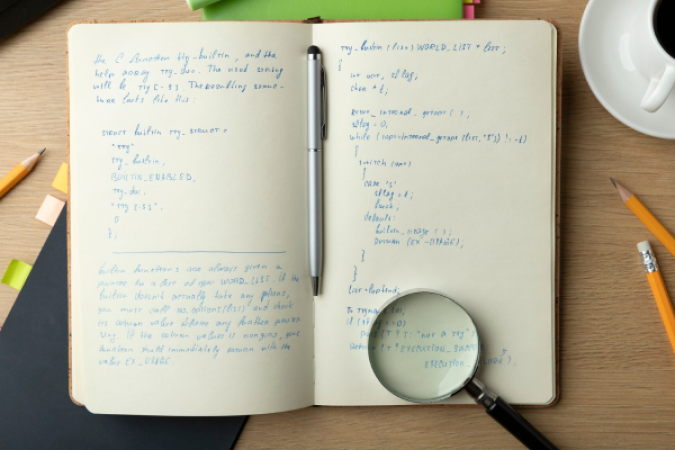 the C function tty_builtin, and the
help array tty_doc. The used string
will be tty [-s]. The resulting struc-
ture looks like this.
struct builtin tty_struct =
"tty"
tty_builtin,
BUILTIN_ENABLED,
tty_doc,
"tty [-s]",
0
};
builtin functions are always given a
pointer to a list of type WORD_LIST. If the
builtin doesn't actually take any
you must call no_options(list) and check
its return value before any further process-
sing. If the return value is your
function should immediately return with the
value EX_USAGE.
tty_builtin (list) WORD_LIST * list;
{
int opt, sflag;
char * t;
reset_internal_getopt ( );
sflag = 0;
while (opt=internal_getopt (list,"s")) != -1)
{
switch (opt)
{
case 's'
sflag = 1;
break;
default:
builtin_usage ( );
return (EX_USAGE);
}
}
list = loptend;
t =
if (sflag == 0)
"not a tty"
return t ? EXECUTION_
EXECUTION_